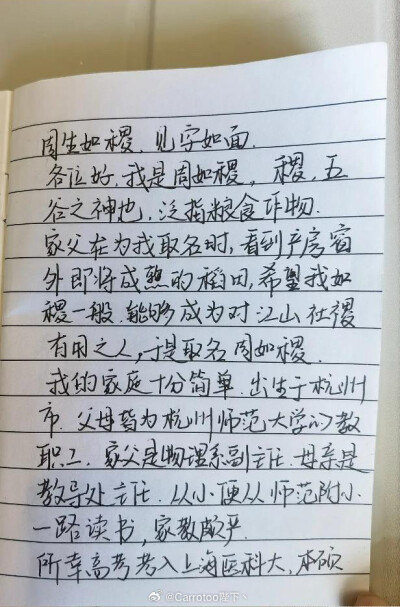 周生如稷,见字如面.
各位好,我是周如稷,稷,五
谷之神也,泛指粮食作物.
家父在为我取名时,看到产房窗
外即将成熟的稻田,希望我如
稷一般,能够成为对江山社稷
有用之人,于是取名周如稷.
我的家庭十分简单.出生于杭州
市.父母皆为杭州师范大学的教
职工.家父是物理系副主任.母亲是
教导处主任.从小便从师范附小
一路读书,家教颇严.
所幸高考考入上海医科大,本硕
@Carrotoo陛下丶